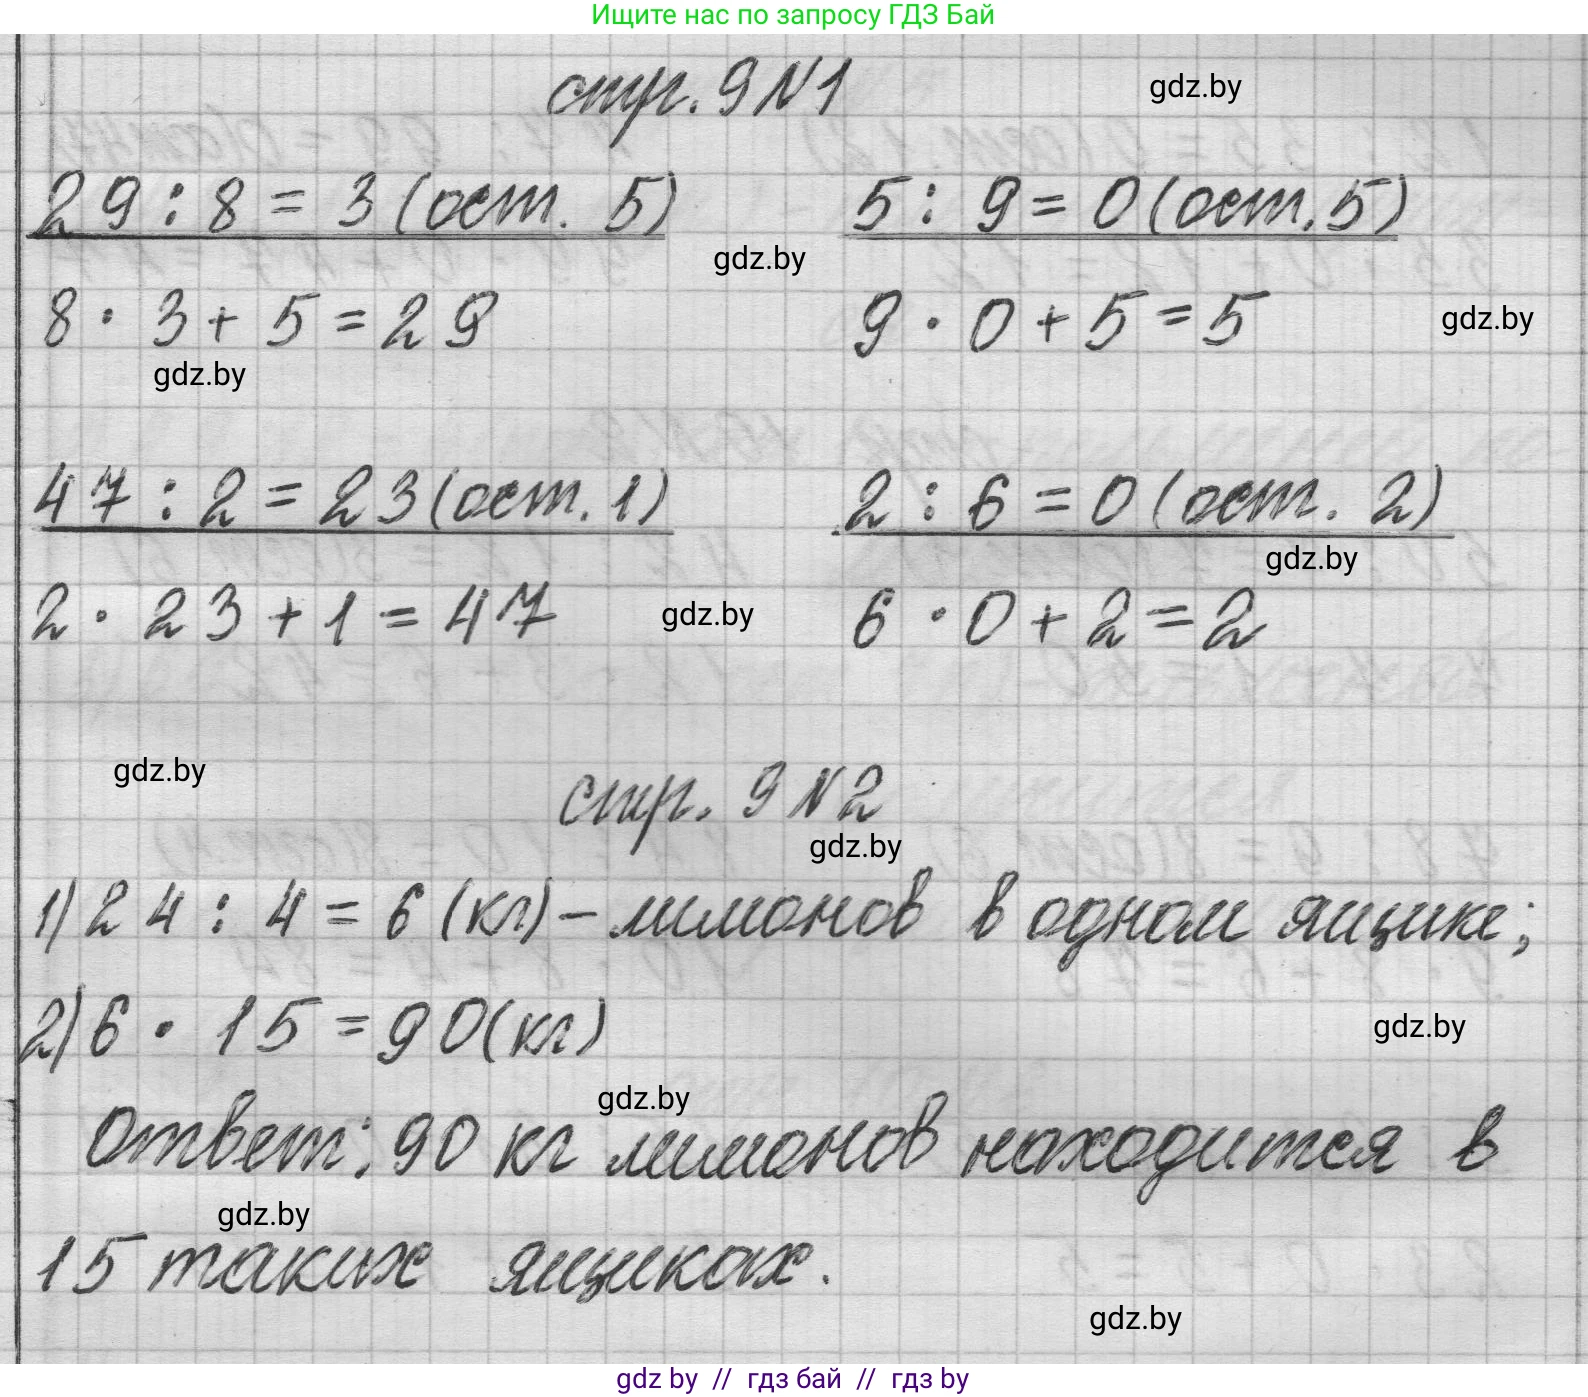 Ищите нас по запросу ГДЗ Бай
стр. 9 №1
gdz.by
29 : 8 = 3 (ост. 5)
5 : 9 = 0 (ост. 5)
gdz.by
8 · 3 + 5 = 29
9 · 0 + 5 = 5
gdz.by
gdz.by
47 : 2 = 23 (ост. 1)
2 : 6 = 0 (ост. 2)
gdz.by
2 · 23 + 1 = 47
gdz.by
6 · 0 + 2 = 2
gdz.by
стр. 9 №2
gdz.by
1) 24 : 4 = 6 (кг) – лимонов в одном ящике;
2) 6 · 15 = 90 (кг)
gdz.by
gdz.by
Ответ: 90 кг лимонов находится в
gdz.by
15 таких ящиках.
gdz.by
gdz by // гдз бай // гдз by